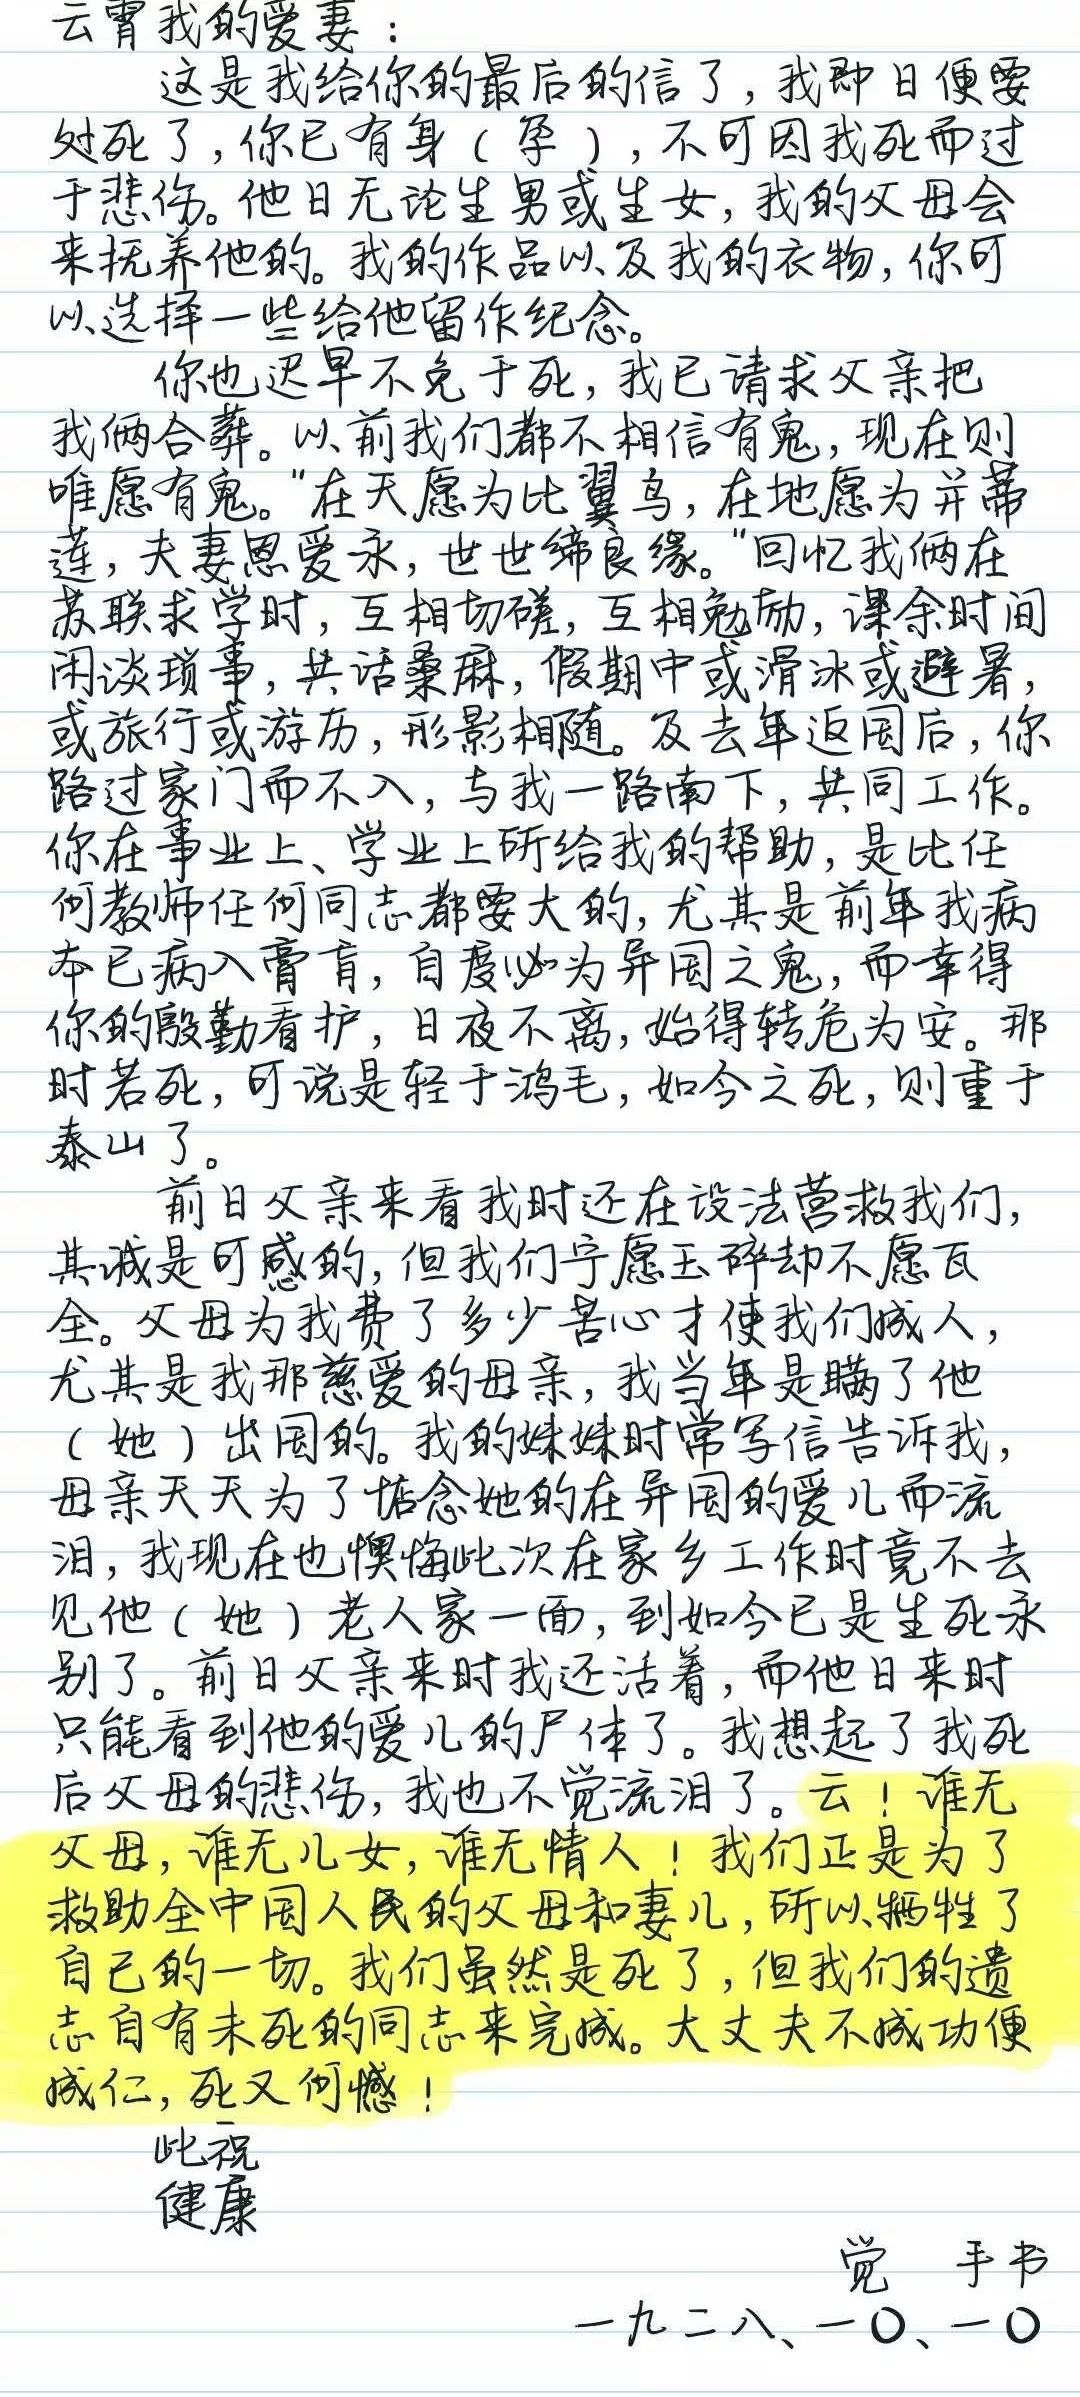 云霄我的爱妻：
这是我给你的最后的信了，我即日便要
处死了，你已有身（孕），不可因我死而过
于悲伤。他日无论生男或生女，我的父母会
来抚养他的。我的作品以及我的衣物，你可
以选择一些给他留作纪念。
你也迟早不免于死，我已请求父亲把
我俩合葬。以前我们都不相信有鬼，现在则
唯愿有鬼。“在天愿为比翼鸟，在地愿为并蒂
莲，夫妻恩爱永，世世缔良缘。”回忆我俩在
苏联求学时，互相切磋，互相勉励，课余时间
闲谈琐事，共话桑麻，假期中或滑冰或避暑，
或旅行或游历，形影相随。及去年返国后，你
路过家门而不入，与我一路南下，共同工作。
你在事业上、学业上所给我的帮助，是比任
何教师任何同志都要大的，尤其是前年我病
本已病入膏肓，自度必为异国之鬼，而幸得
你的殷勤看护，日夜不离，始得转危为安。那
时若死，可说是轻于鸿毛，如今之死，则重于
泰山了。
前日父亲来看我时还在设法营救我们，
其诚是可感的，但我们宁愿玉碎却不愿瓦
全。父母为我费了多少苦心才使我们成人，
尤其是我那慈爱的母亲，我当年是瞒了他
（她）出国的。我的妹妹时常写信告诉我，
母亲天天为了惦念她的在异国的爱儿而流
泪，我现在也懊悔此次在家乡工作时竟不去
见他（她）老人家一面，到如今已是生死永
别了。前日父亲来时我还活着，而他日来时
只能看到他的爱儿的尸体了。我想起了我死
后父母的悲伤，我也不觉流泪了。云！谁无
父母，谁无儿女，谁无情人！我们正是为了
救助全中国人民的父母和妻儿，所以牺牲了
自己的一切。我们虽然是死了，但我们的遗
志自有未死的同志来完成。大丈夫不成功便
成仁，死又何憾！
此祝
健康
觉 手书
一九二八、一〇、一〇